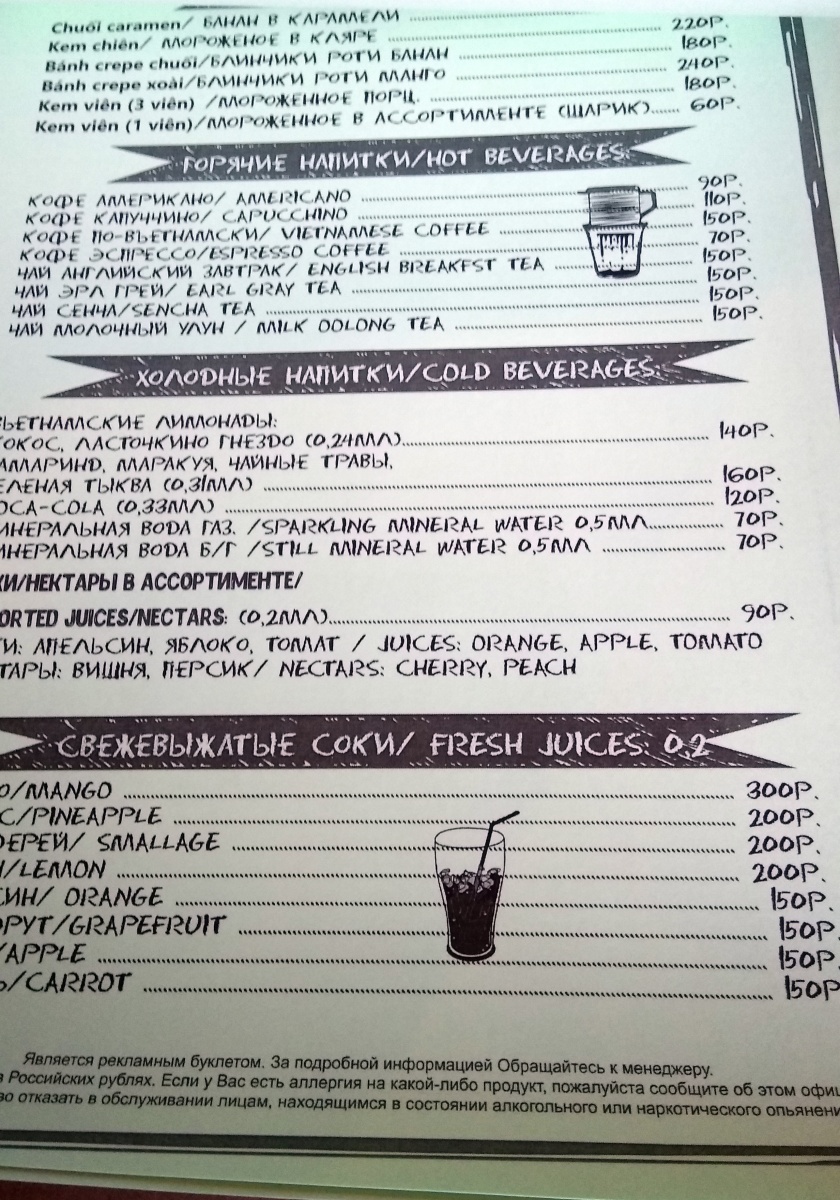 Chuối caramen/ БАНАН В КАРАМЕЛИ 220Р.
Kem chiên/ МОРОЖЕНОЕ В КЛЯРЕ 180Р.
Bánh crepe chuối/БЛИНЧИКИ РОТИ БАНАН 240Р.
Bánh crepe xoài/БЛИНЧИКИ РОТИ МАНГО 180Р.
Kem viên (3 viên) /МОРОЖЕННОЕ ПОРЦ. 60Р.
Kem viên (1 viên)/МОРОЖЕННОЕ В АССОРТИМЕНТЕ (ШАРИК)
ГОРЯЧИЕ НАПИТКИ/HOT BEVERAGES:
КОФЕ АМЕРИКАНО/ AMERICANO 90Р.
КОФЕ КАПУЧЧИНО/ CAPUCCHINO 110Р.
КОФЕ ПО-ВЬЕТНАМСКИ/ VIETNAMESE COFFEE 150Р.
КОФЕ ЭСПРЕССО/ESPRESSO COFFEE 70Р.
ЧАЙ АНГЛИЙСКИЙ ЗАВТРАК/ ENGLISH BREAKFST TEA 150Р.
ЧАЙ ЭРЛ ГРЕЙ/ EARL GRAY TEA 150Р.
ЧАЙ СЕНЧА/SENCHA TEA 150Р.
ЧАЙ МОЛОЧНЫЙ УЛУН / MILK OOLONG TEA 150Р.
ХОЛОДНЫЕ НАПИТКИ/COLD BEVERAGES:
ЬЕТНАМСКИЕ ЛИМОНАДЫ:
ОКОС, ЛАСТОЧКИНО ГНЕЗДО (0,24МЛ) 140Р.
АМАРИНД, МАРАКУЯ, ЧАЙНЫЕ ТРАВЫ,
ЕЛЕНАЯ ТЫКВА (0,31МЛ) 160Р.
OCA-COLA (0,33МЛ) 120Р.
ИНЕРАЛЬНАЯ ВОДА ГАЗ. /SPARKLING MINERAL WATER 0,5МЛ 70Р.
ИНЕРАЛЬНАЯ ВОДА Б/Г /STILL MINERAL WATER 0,5МЛ 70Р.
КИ/НЕКТАРЫ В АССОРТИМЕНТЕ/
ORTED JUICES/NECTARS: (0,2МЛ) 90Р.
И: АПЕЛЬСИН, ЯБЛОКО, ТОМАТ / JUICES: ORANGE, APPLE, TOMATO
ТАРЫ: ВИШНЯ, ПЕРСИК/ NECTARS: CHERRY, PEACH
СВЕЖЕВЫЖАТЫЕ СОКИ/ FRESH JUICES: 0,2
О/MANGO 300Р.
С/PINEAPPLE 200Р.
ДЕРЕЙ/ SMALLAGE 200Р.
/LEMON 200Р.
СИН/ ORANGE 150Р.
РУТ/GRAPEFRUIT 150Р.
/APPLE 150Р.
Ь/CARROT 150Р
Является рекламным буклетом. За подробной информацией Обращайтесь к менеджеру.
в Российских рублях. Если у Вас есть аллергия на какой-либо продукт, пожалуйста сообщите об этом офиц
во отказать в обслуживании лицам, находящимся в состоянии алкогольного или наркотического опьянени